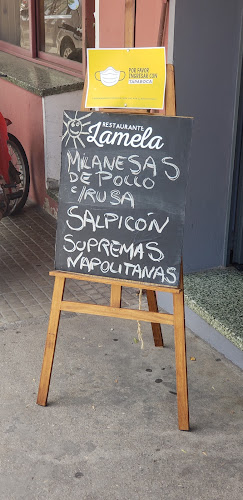 POR FAVOR
INGRESAR CON
TAPABOCA
RESTAURANTE
Lamela
MILANESAS
DE POLLO
C/RUSA
SALPICÓN
SUPREMAS
NAPOLITANAS